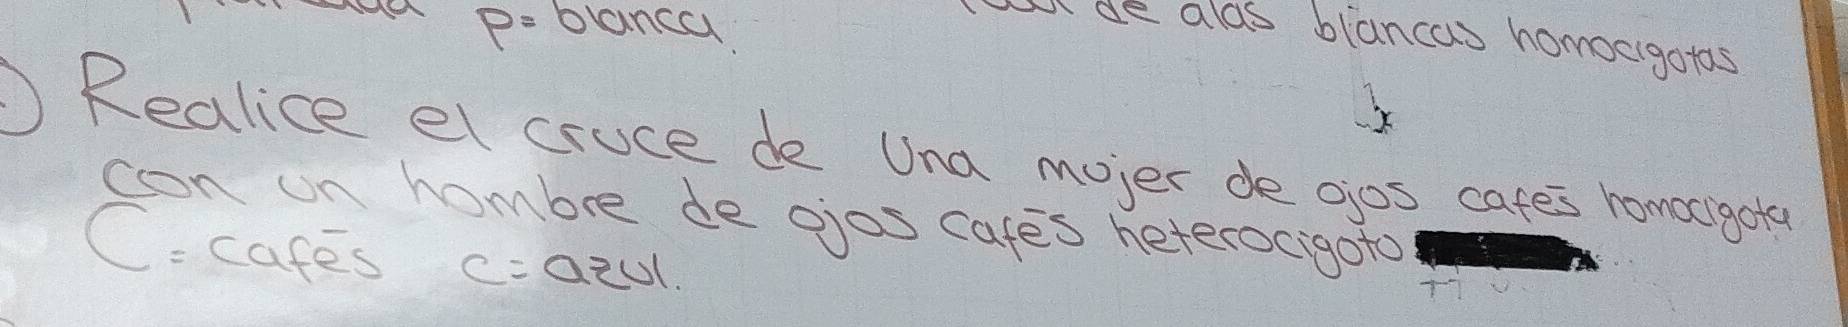 p=blanca.
de alas blancas homocigotas
Realice el cruce de una mujer de ojos cafés homocigota
con un hombre de ojos cafés heterocigoto
C=cafés c=azul.